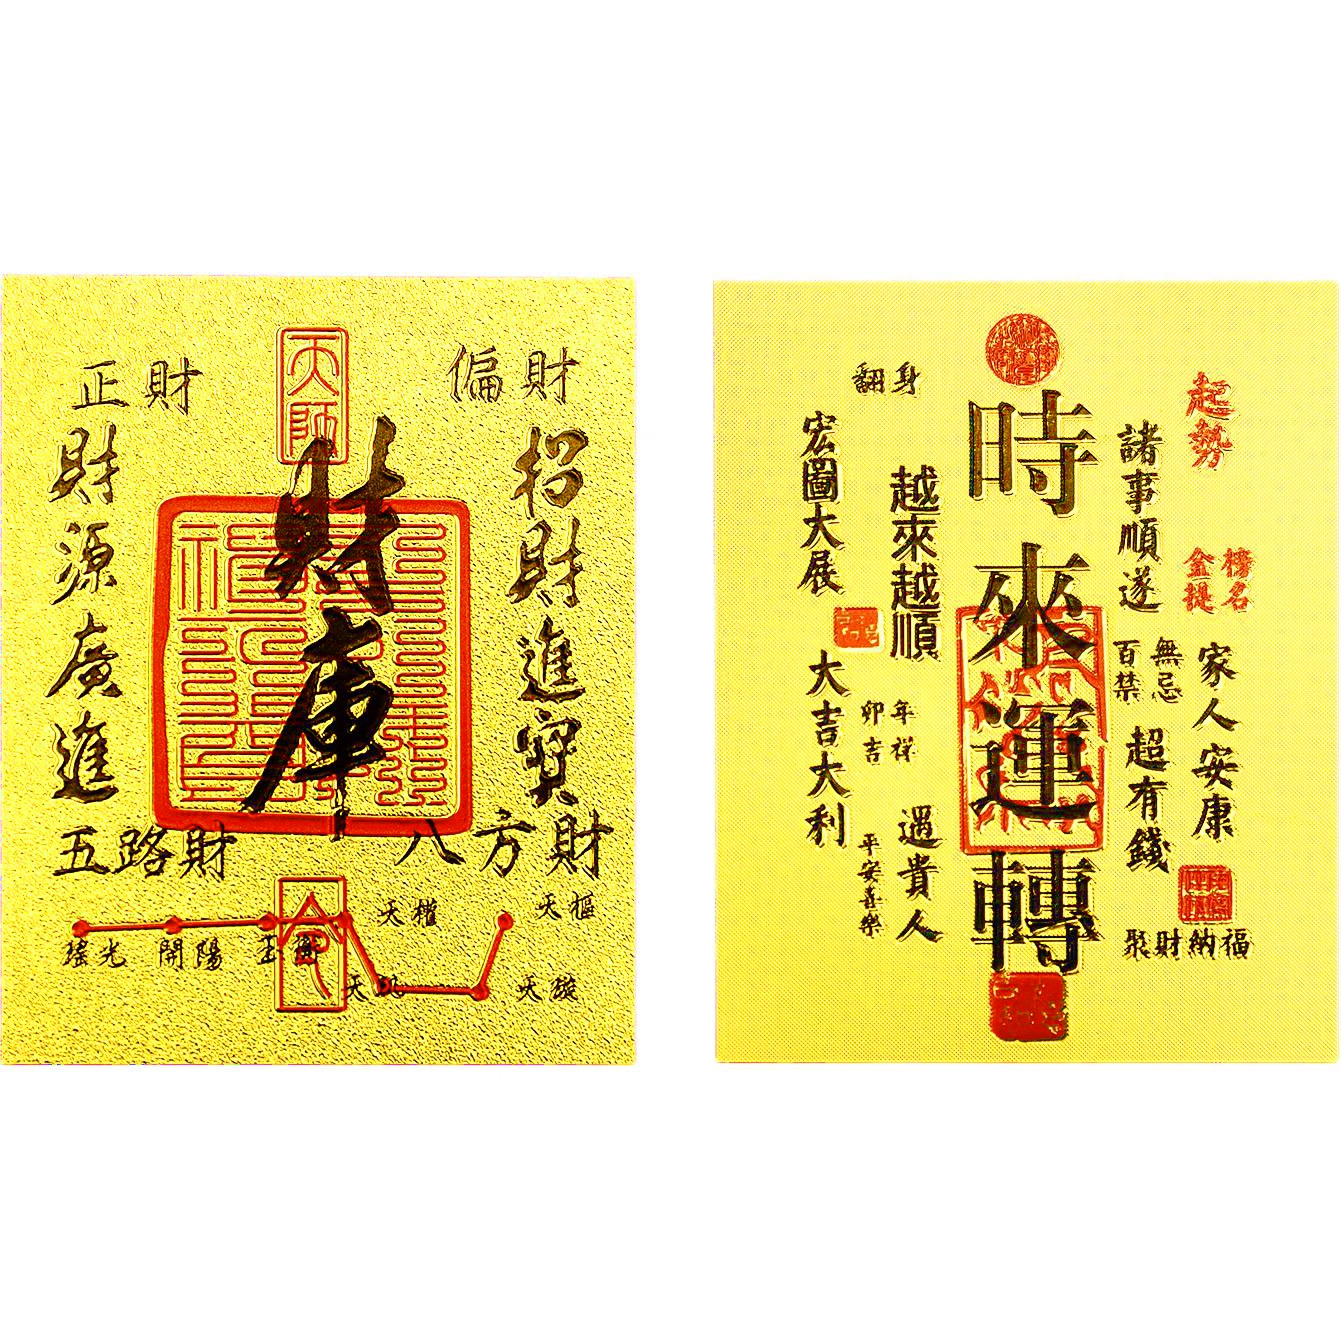 天師
正財
偏財
財庫
招財進寶
財源廣進
五路財
八方財
天樞
天璇
天璣
天權
玉衡
開陽
瑤光
令
時來運轉
起勢
金榜提名
諸事順遂
百無禁忌
家人安康
超有錢
聚財納福
翻身
越來越順
宏圖大展
卯年吉祥
大吉大利
遇貴人
平安喜樂